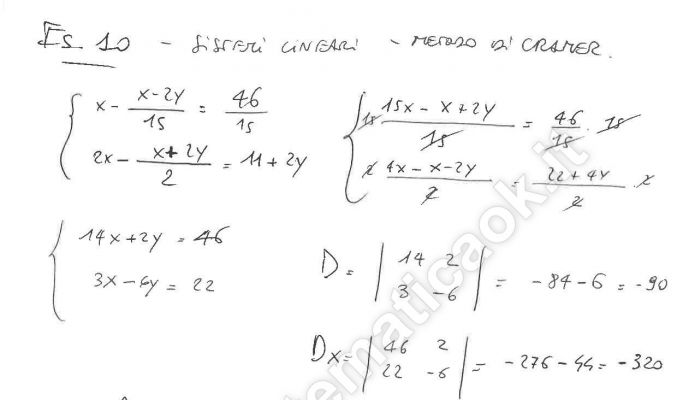 Es. 10 - SISTEMI LINEARI - METODO DI CRAMER.
{ x - (x-2y)/15 = 46/15
2x - (x+2y)/2 = 11+2y
{ 15 · (15x - x+2y)/15 = 46/15 · 15
2 · (4x - x-2y)/2 = (22+4y)/2 · 2
{ 14x+2y = 46
3x-6y = 22
D = | 14 2 |
| 3 -6 | = -84-6 = -90
Dx = | 46 2 |
| 22 -6 | = -276-44 = -320
tematicaok.it